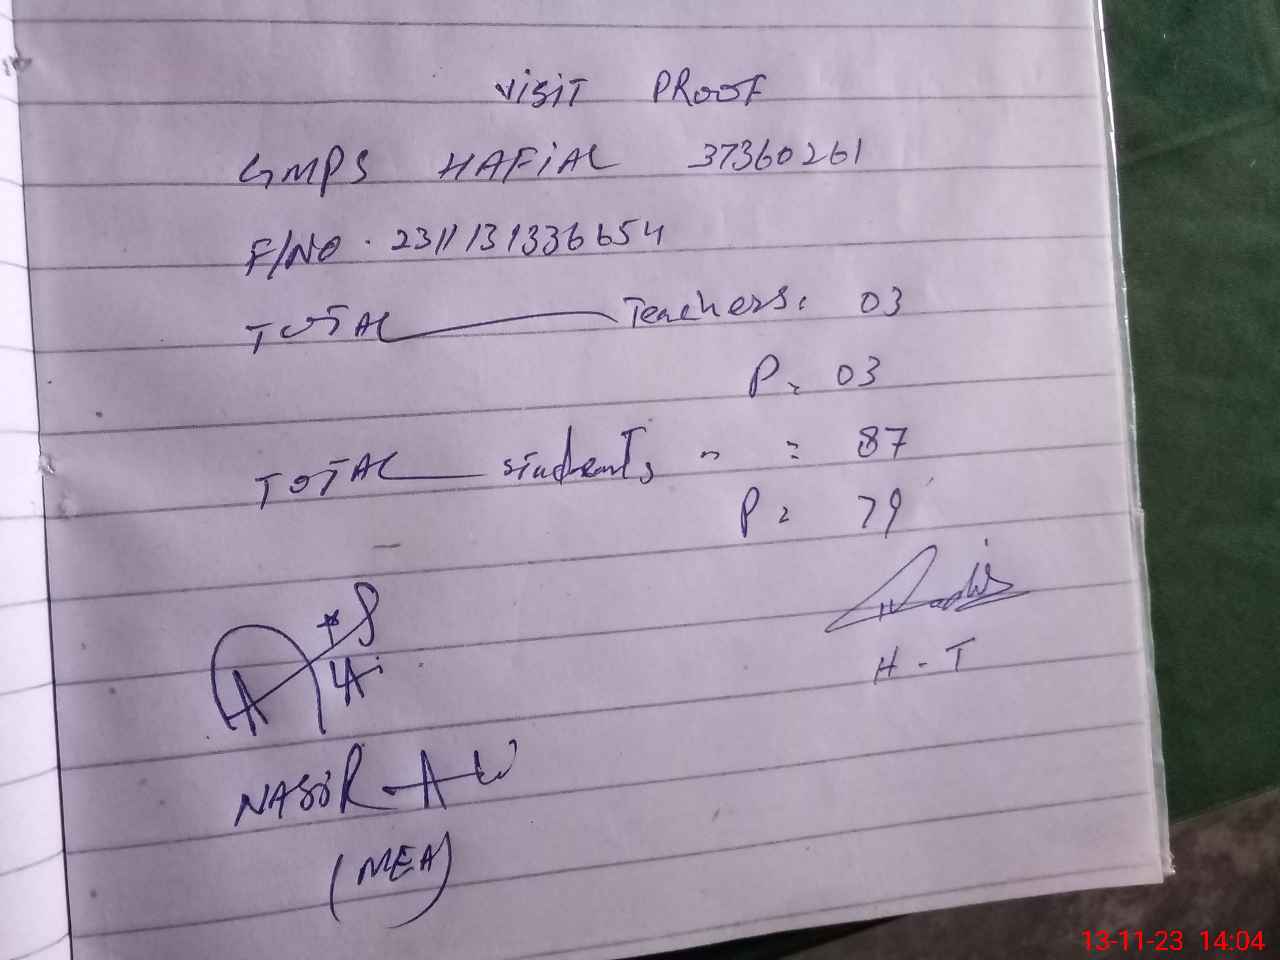 VISIT PROOF
GMPS HAFIAL 37360261
F/NO. 2311131336654
TOTAL Teachers: 03
P. 03
TOTAL students " = 87
P = 79
H-T
NASIR
(MEA)
13-11-23 14:04